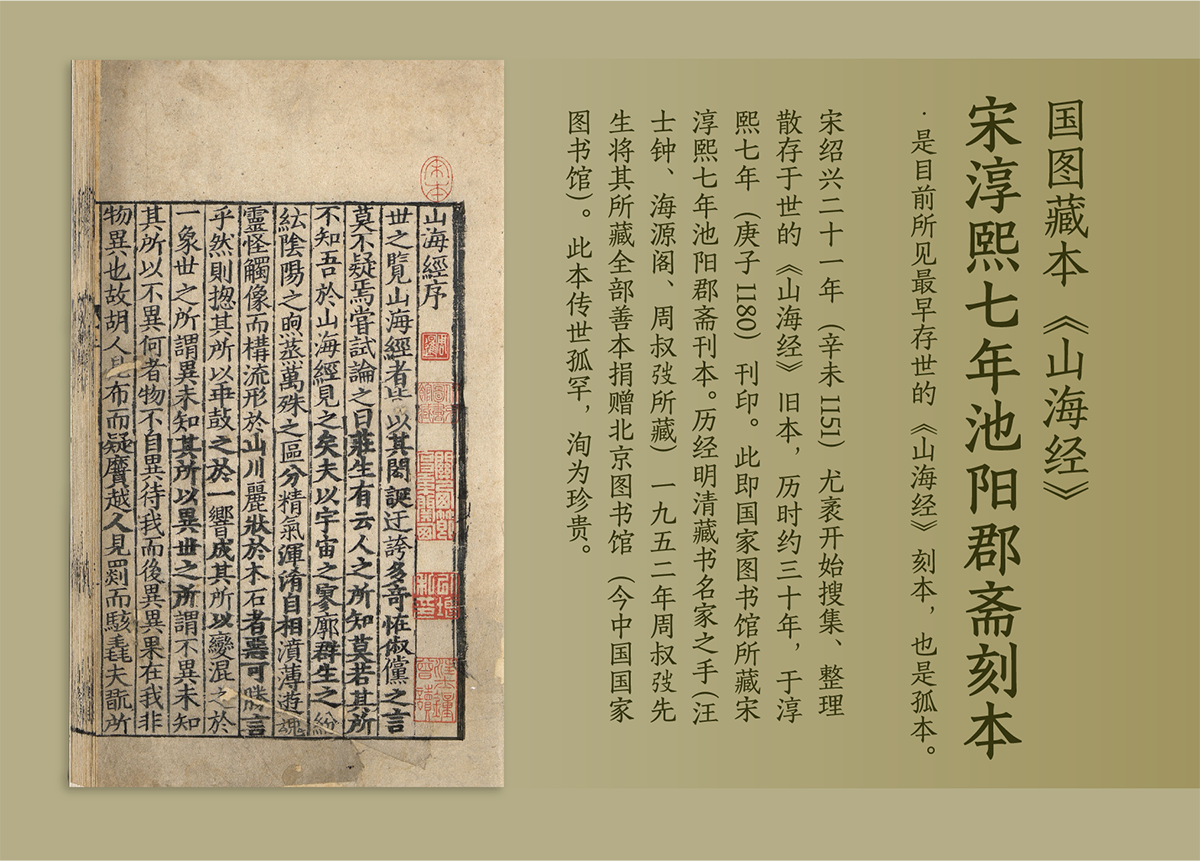 国图藏本《山海经》
宋淳熙七年池阳郡斋刻本
·是目前所见最早存世的《山海经》刻本，也是孤本。
宋绍兴二十一年（辛未1151）尤袤开始搜集、整理
散存于世的《山海经》旧本，历时约三十年，于淳
熙七年（庚子1180）刊印。此即国家图书馆所藏宋
淳熙七年池阳郡斋刊本。历经明清藏书名家之手（汪
士钟、海源阁、周叔弢所藏）一九五二年周叔弢先
生将其所藏全部善本捐赠北京图书馆（今中国国家
图书馆）。此本传世孤罕，洵为珍贵。
宋本
山海經序
世之覽山海經者皆以其閎誕迂誇多奇怪俶儻之言
莫不疑焉嘗試論之曰莊生有云人之所知莫若其所
不知吾於山海經見之矣夫以宇宙之寥廓群生之紛
紜陰陽之煦蒸萬殊之區分精氣渾淆自相濆薄遊魂
靈怪觸像而構流形於山川麗狀於木石者惡可勝言
乎然則揔其所以乖鼓之於一響成其所以變混之於
一象世之所謂異未知其所以異世之所謂不異未知
其所以不異何者物不自異待我而後異異果在我非
物異也故胡人見布而疑黂越人見罽而駭毳夫翫所